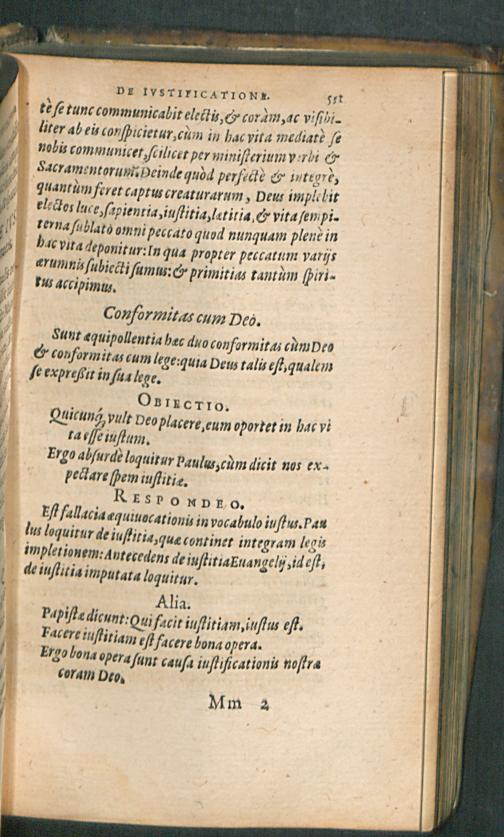 DE IVSTIFICATIONE. 551
tè se tunc communicabit electis, & coràm, ac visibi-
liter ab eis conspicietur, cùm in hac vita mediatè se
nobis communicet, scilicet per ministerium verbi &
Sacramentorum. Deinde quòd perfectè & integrè,
quantùm feret captus creaturarum, Deus implebit
electos luce, sapientia, iustitia, lætitia, & vita sempi-
terna sublato omni peccato quod nunquam plenè in
hac vita deponitur: In qua propter peccatum varijs
ærumnis subiecti sumus: & primitias tantùm spiri-
tus accipimus.
Conformitas cum Deo.
Sunt æquipollentia hæc duo conformitas cùm Deo
& conformitas cum lege: quia Deus talis est, qualem
se expreßit in sua lege.
OBIECTIO.
Quicunq́, vult Deo placere, eum oportet in hac vi
ta esse iustum.
Ergo absurdè loquitur Paulus, cùm dicit nos ex-
pectare spem iustitiæ.
RESPONDEO.
Est fallacia æquiuocationis in vocabulo iustus. Pau
lus loquitur de iustitia, quæ continet integram legis
impletionem: Antecedens de iustitia Euangelij, id est,
de iustitia imputata loquitur.
Alia.
Papistæ dicunt: Qui facit iustitiam, iustus est.
Facere iustitiam est facere bona opera.
Ergo bona opera sunt causa iustificationis nostræ
coram Deo.
Mm 2